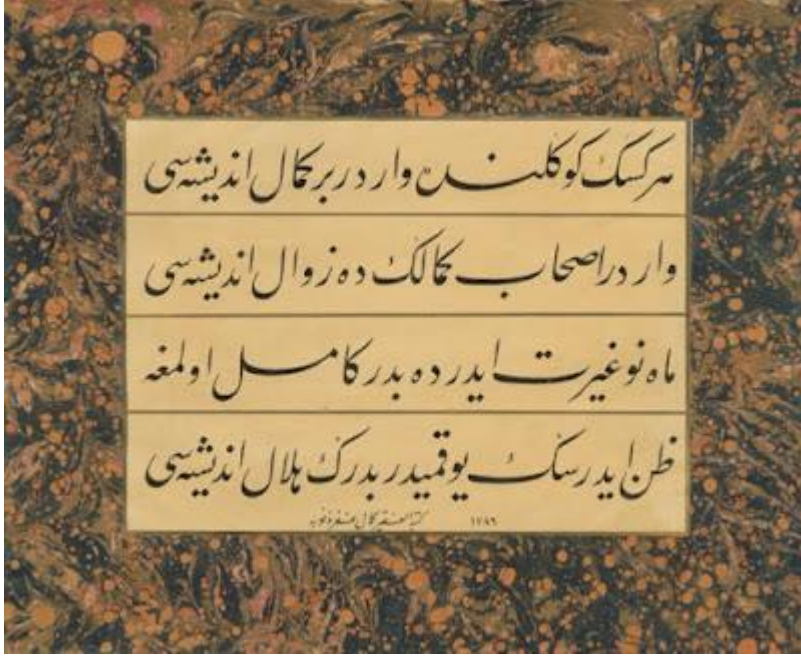 هركسك كوكلنده واردر بر كمال انديشه‌سى
واردر اصحاب كمالك ده زوال انديشه‌سى
ماه نو غيرت ايدر ده بدر كامل اولمغه
ظن ايدرسك يوقميدر بدرك هلال انديشه‌سى
كتبه الفقير كمال غفر ذنوبه ١٢٨٦